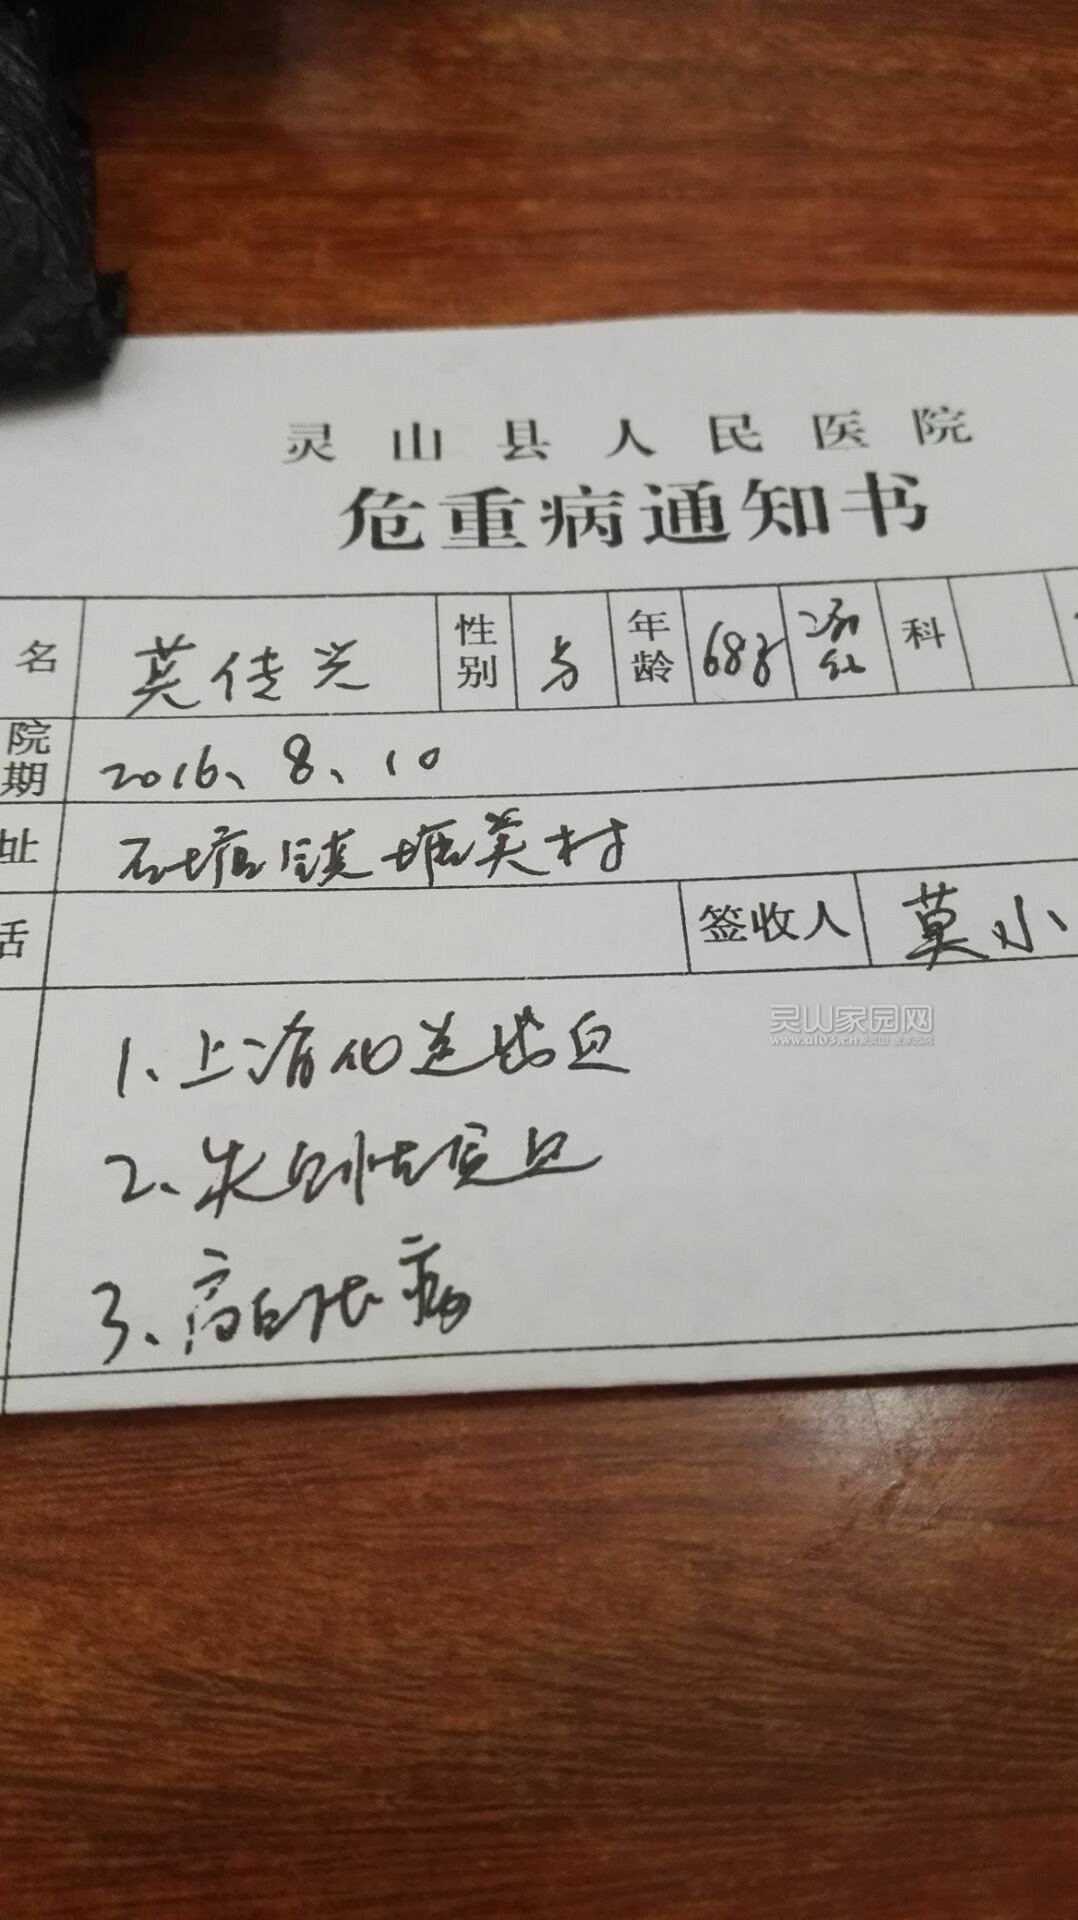 灵山县人民医院
危重病通知书
名 莫传兴 性别 男 年龄 68岁 科
院期 2016、8、10
址 石塘镇塘美村
话 签收人 莫小
灵山家园网
www.al03.cn爱灵山 爱家园网
1、上消化道出血
2、失血性贫血
3、高血压病